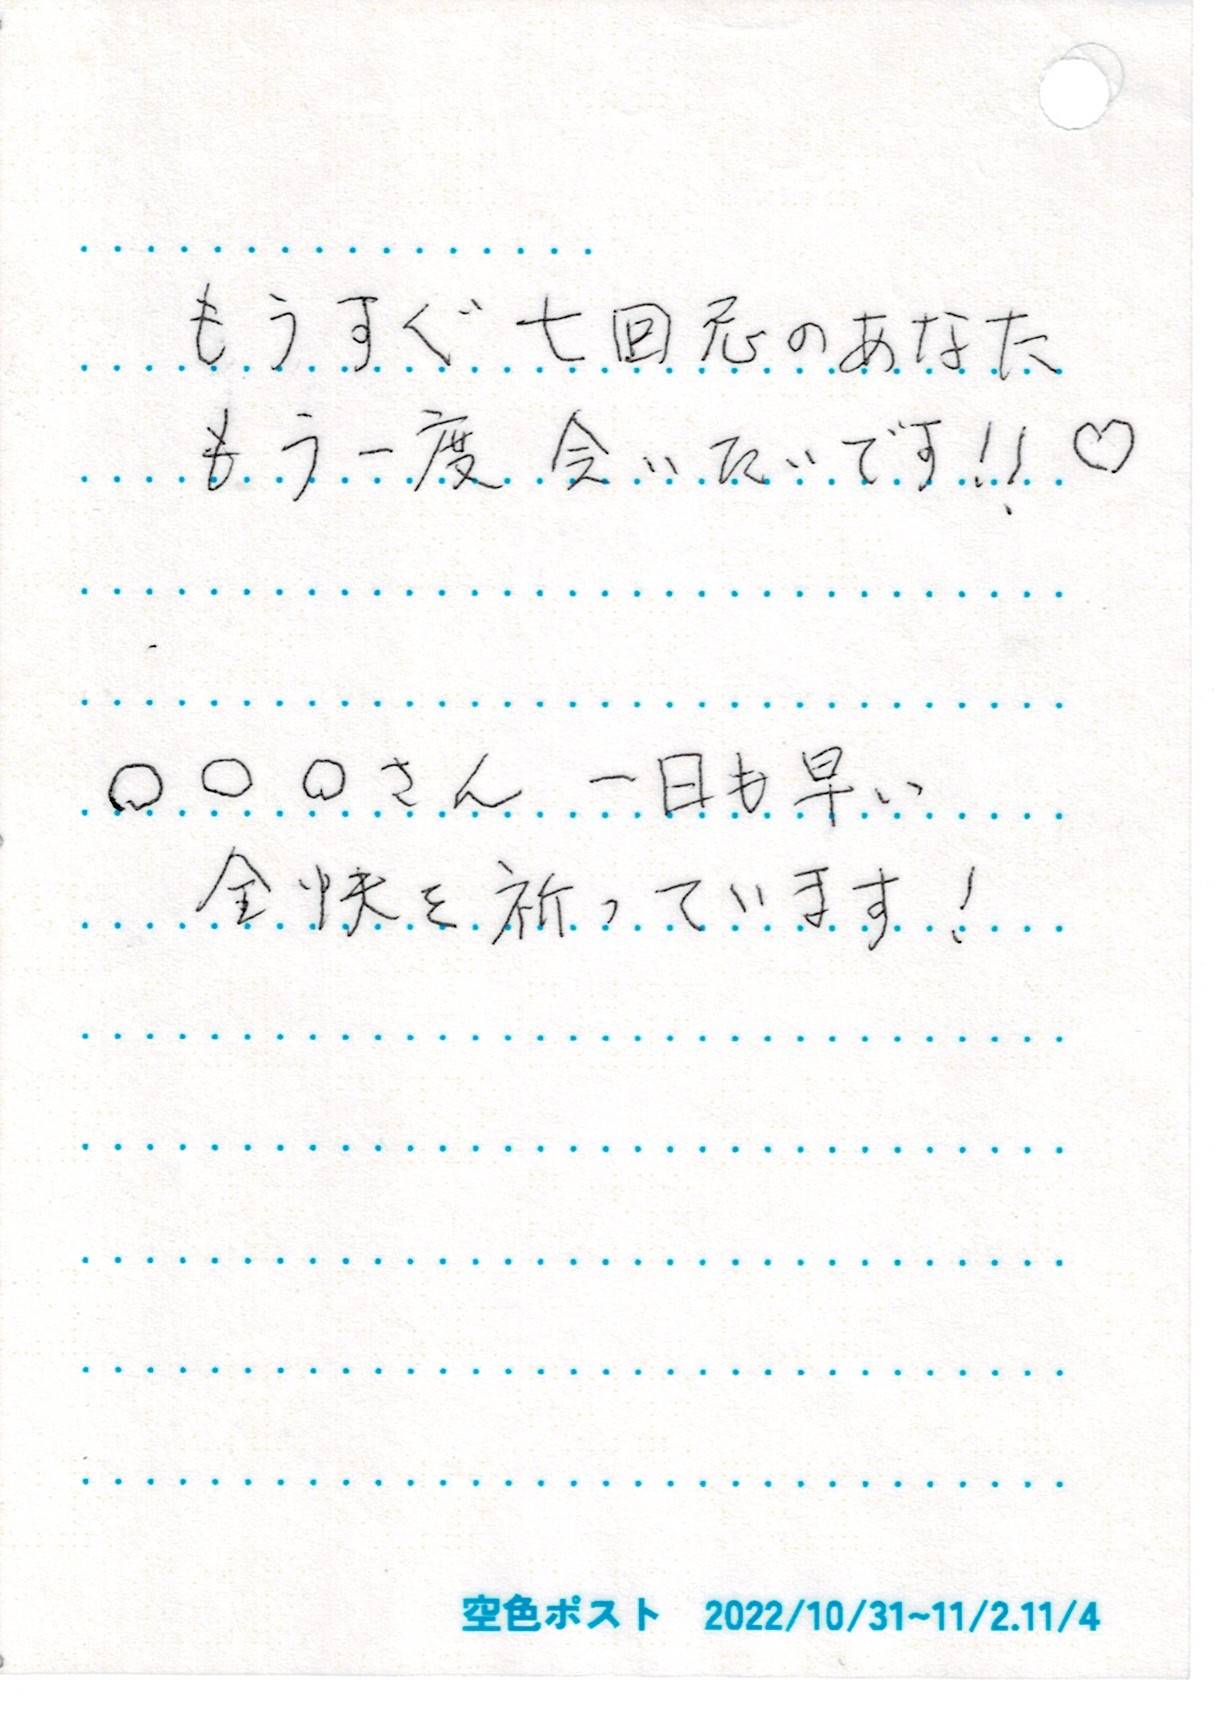 もうすぐ 七回忌のあなた
もう一度 会いたいです!!♡
○○○さん 一日も早い
全快を祈っています!
空色ポスト 2022/10/31~11/2.11/4